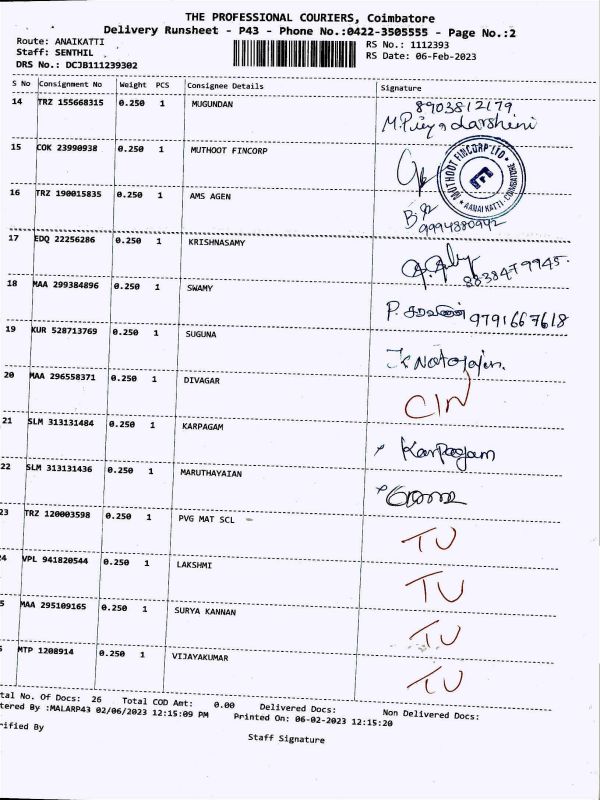 THE PROFESSIONAL COURIERS, Coimbatore
Delivery Runsheet - P43 - Phone No.:0422-3505555 - Page No.:2
Route: ANAIKATTI
RS No.: 1112393
Staff: SENTHIL
RS Date: 06-Feb-2023
DRS No.: DCJB111239302
S No Consignment No Weight PCS Consignee Details Signature
14 TRZ 155668315 0.250 1 MUGUNDAN 8903812179
M.Piriya darshini
15 COK 23990938 0.250 1 MUTHOOT FINCORP
MUTHOOT FINCORP LTD
AANAIKATTI - COIMBATORE
16 TRZ 190015835 0.250 1 AMS AGEN
9994380942
17 EDQ 22256286 0.250 1 KRISHNASAMY
8838479945.
18 MAA 299384896 0.250 1 SWAMY P. சரவணன் 9791667618
19 KUR 528713769 0.250 1 SUGUNA Natarajan.
20 MAA 296558371 0.250 1 DIVAGAR CIN
21 SLM 313131484 0.250 1 KARPAGAM Karpagam
22 SLM 313131436 0.250 1 MARUTHAYAIAN
23 TRZ 120003598 0.250 1 PVG MAT SCL TU
4 VPL 941820544 0.250 1 LAKSHMI TU
5 MAA 295109165 0.250 1 SURYA KANNAN TU
6 MTP 1208914 0.250 1 VIJAYAKUMAR TU
tal No. Of Docs: 26 Total COD Amt: 0.00 Delivered Docs: Non Delivered Docs:
tered By :MALARP43 02/06/2023 12:15:09 PM Printed On: 06-02-2023 12:15:20
rified By
Staff Signature